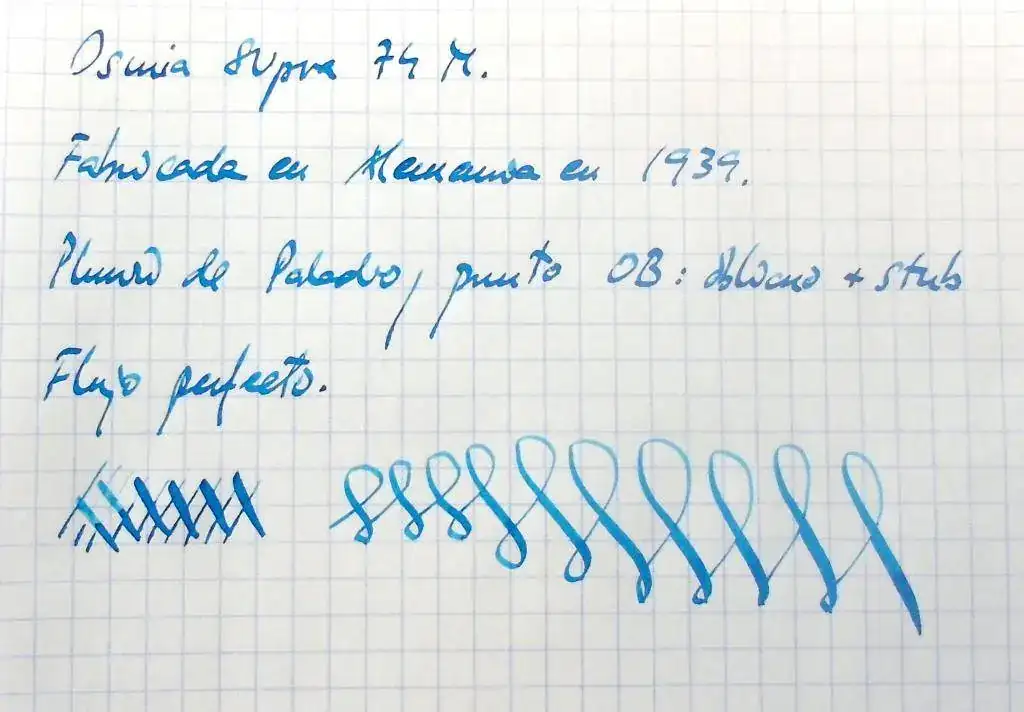 Osmia Supra 74 M.
Fabricada en Alemania en 1939.
Plumín de Paladio, punto OB: oblicuo + stub
Flujo perfecto.